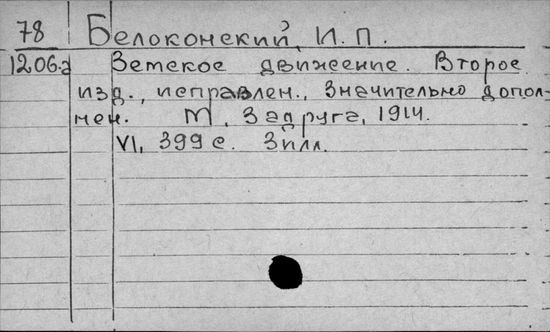 78 Белоконский, И. П.
1206.а Земское движение. Второе
изд., исправлен., значительно допол-
нен. М, Задруга, 1914.
VI, 399 с. 3 илл.